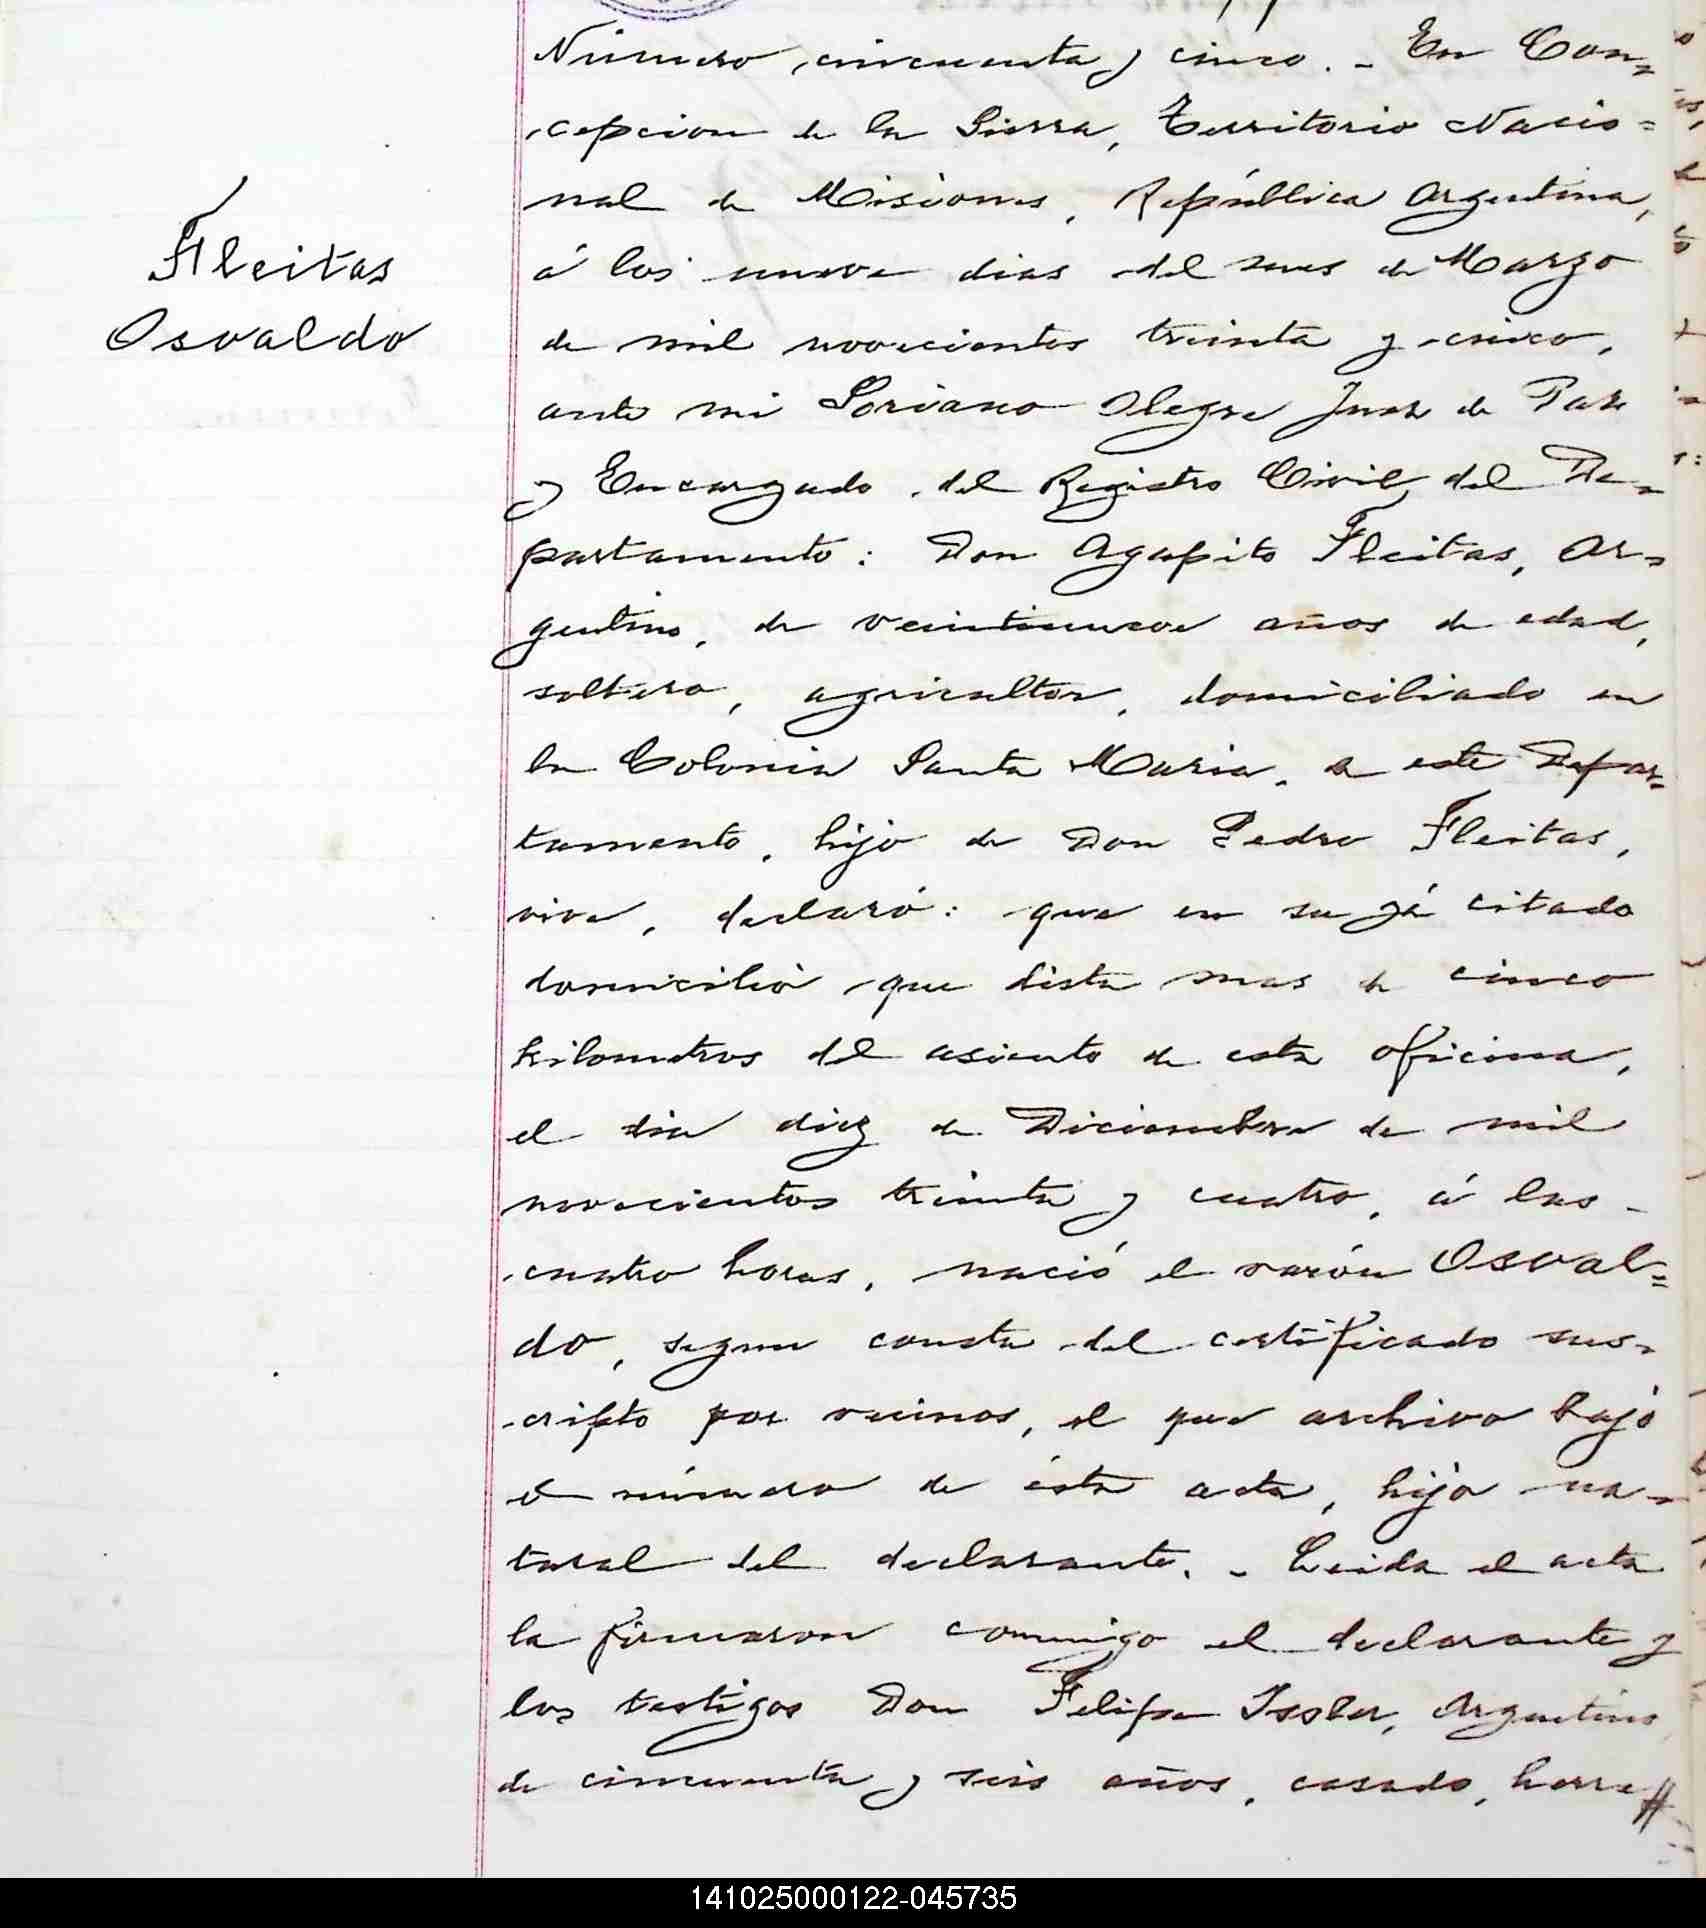 Número cincuenta y cinco. - En Con=
cepcion de la Sierra, Territorio Nacio=
nal de Misiones, República Argentina,
á los nueve dias del mes de Marzo
Fleitas
Osvaldo
de mil novecientos treinta y cinco,
ante mi Soriano Alegre Juez de Paz
y Encargado del Registro Civil del De=
partamento: Don Agapito Fleitas, Ar=
gentino, de veintinueve años de edad,
soltero, agricultor, domiciliado en
la Colonia Santa Maria, de este Depar=
tamento, hijo de Don Pedro Fleitas,
vive, declaró: que en su yá citado
domicilio que dista mas de cinco
kilometros del asiento de esta oficina,
el dia diez de Diciembre de mil
novecientos treinta y cuatro, á las -
cuatro horas, nació el varón Osval=
do, segun consta del certificado sus-
cripto por vecinos, el que archivo bajo
el número de ésta acta, hijo na-
tural del declarante. - Leida el acta
la firmaron conmigo el declarante y
los testigos Don Felipe Issler, Argentino
de cincuenta y seis años, casado, herre//
141025000122-045735